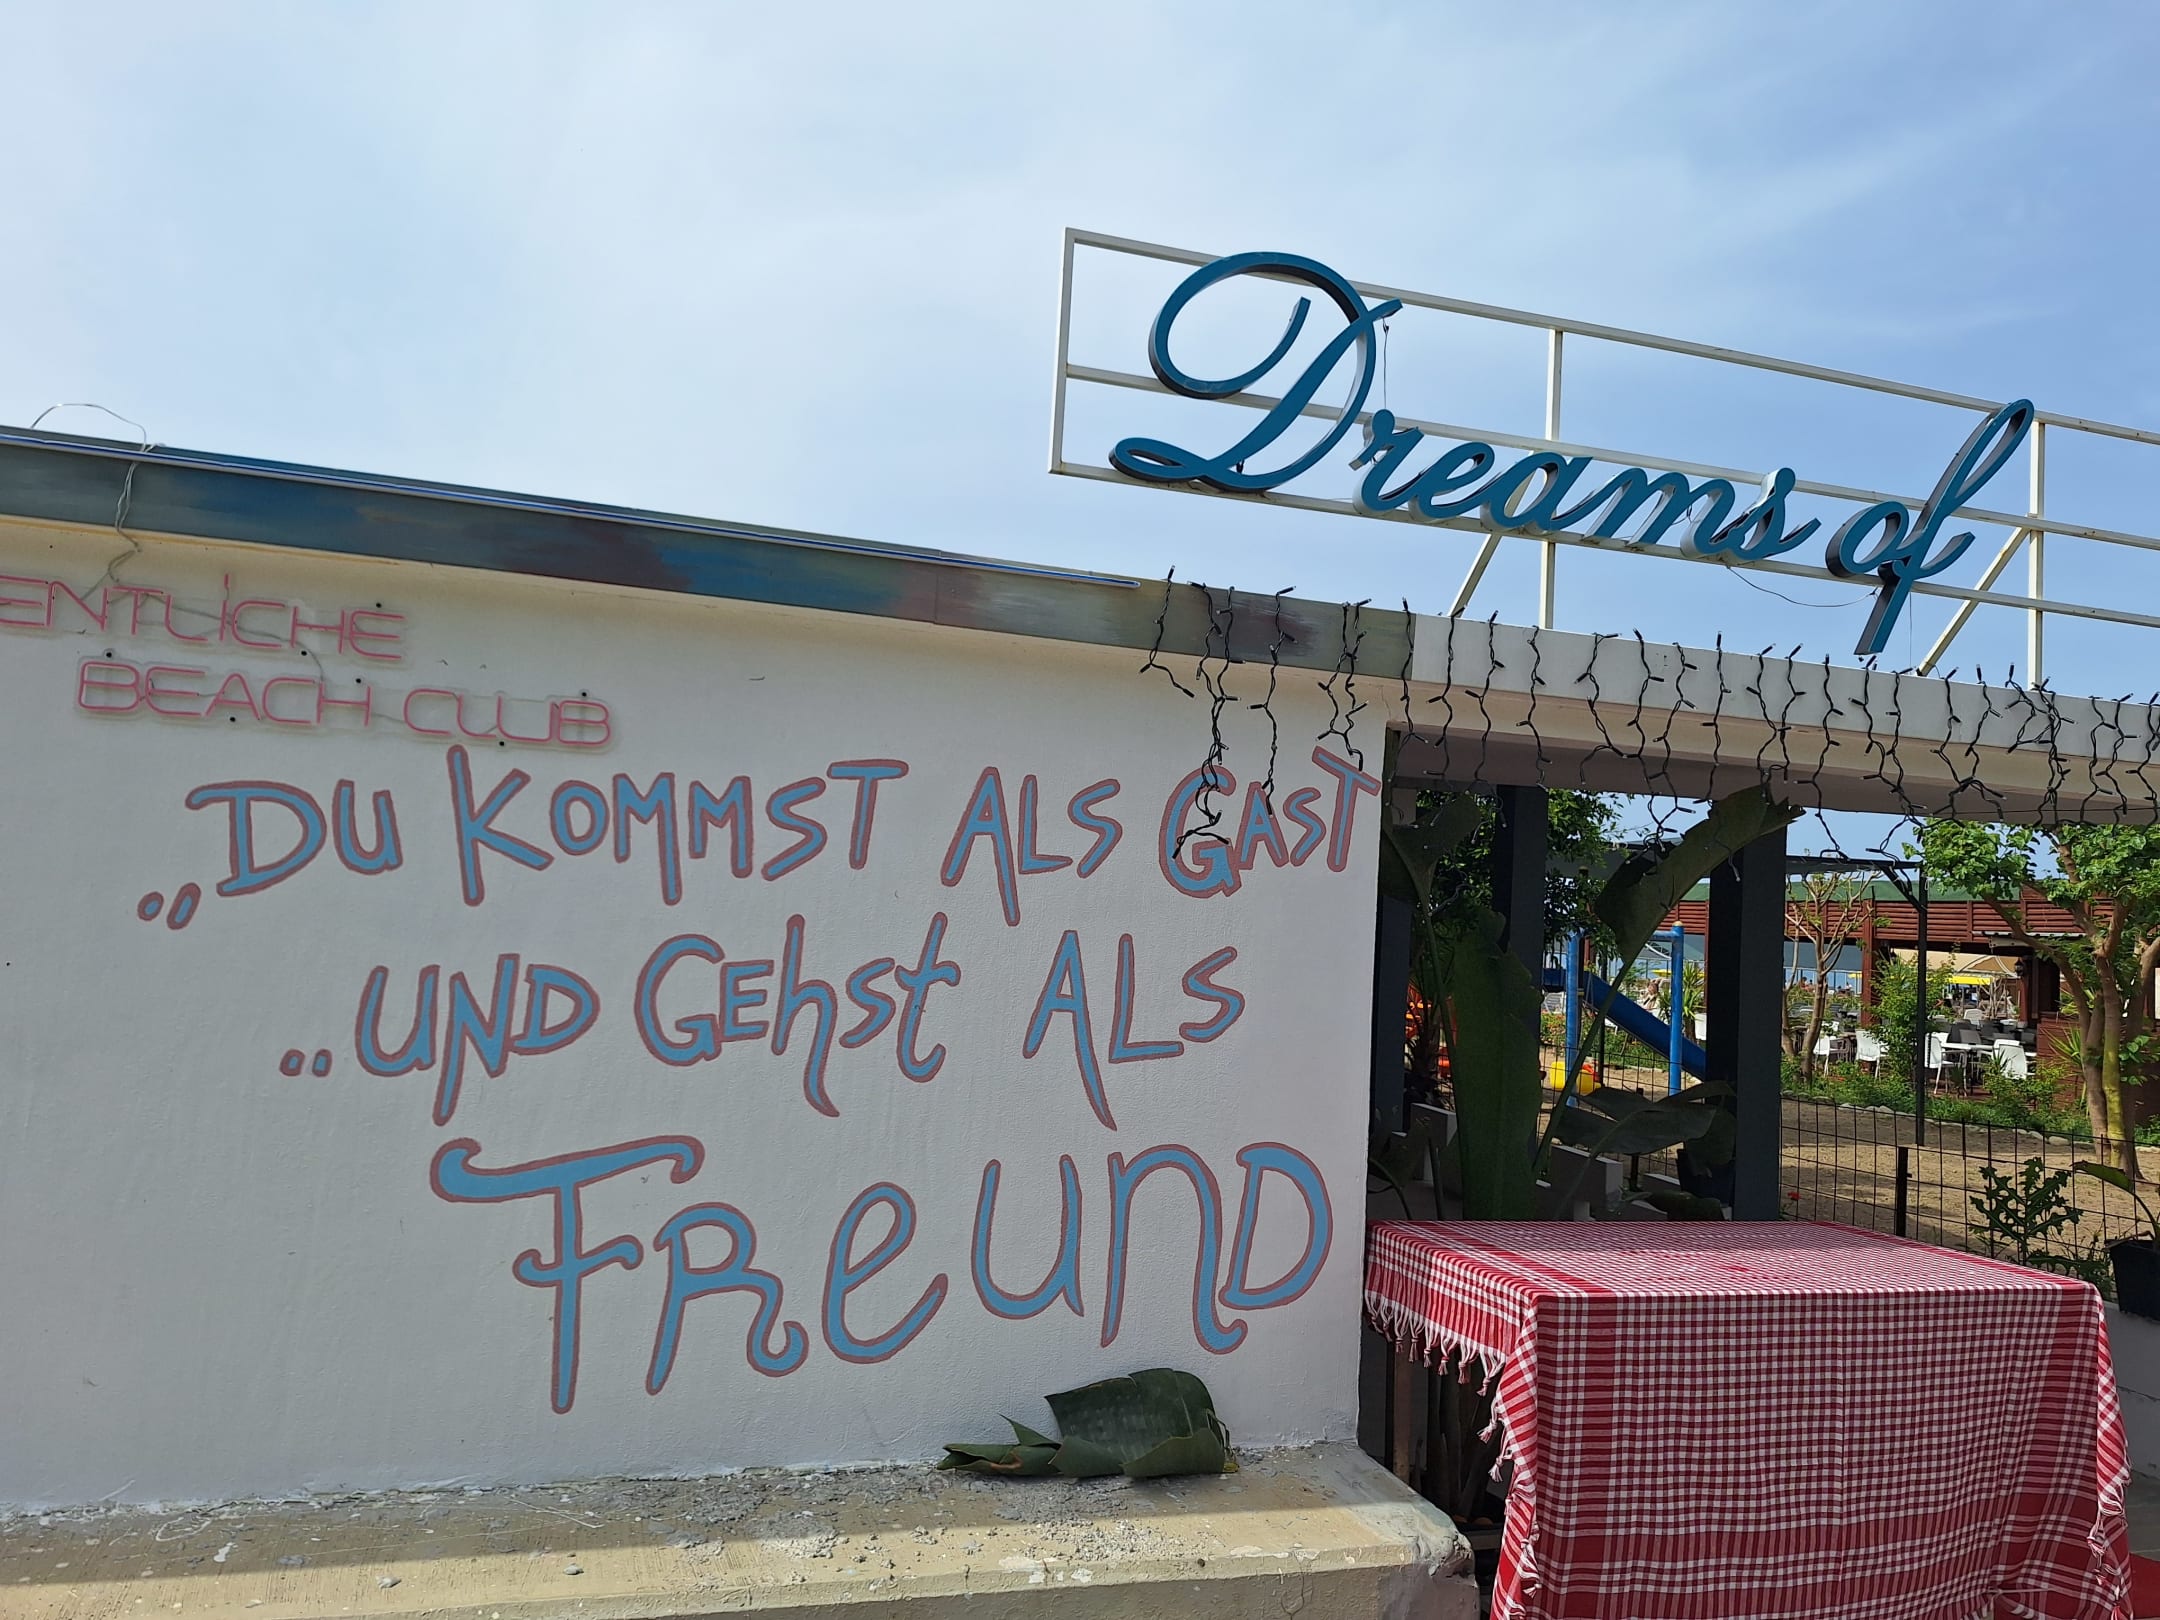 Dreams of
ENTLiCHE
BEACH CLUB
„Du kommst als Gast
..und gehst als
Freund